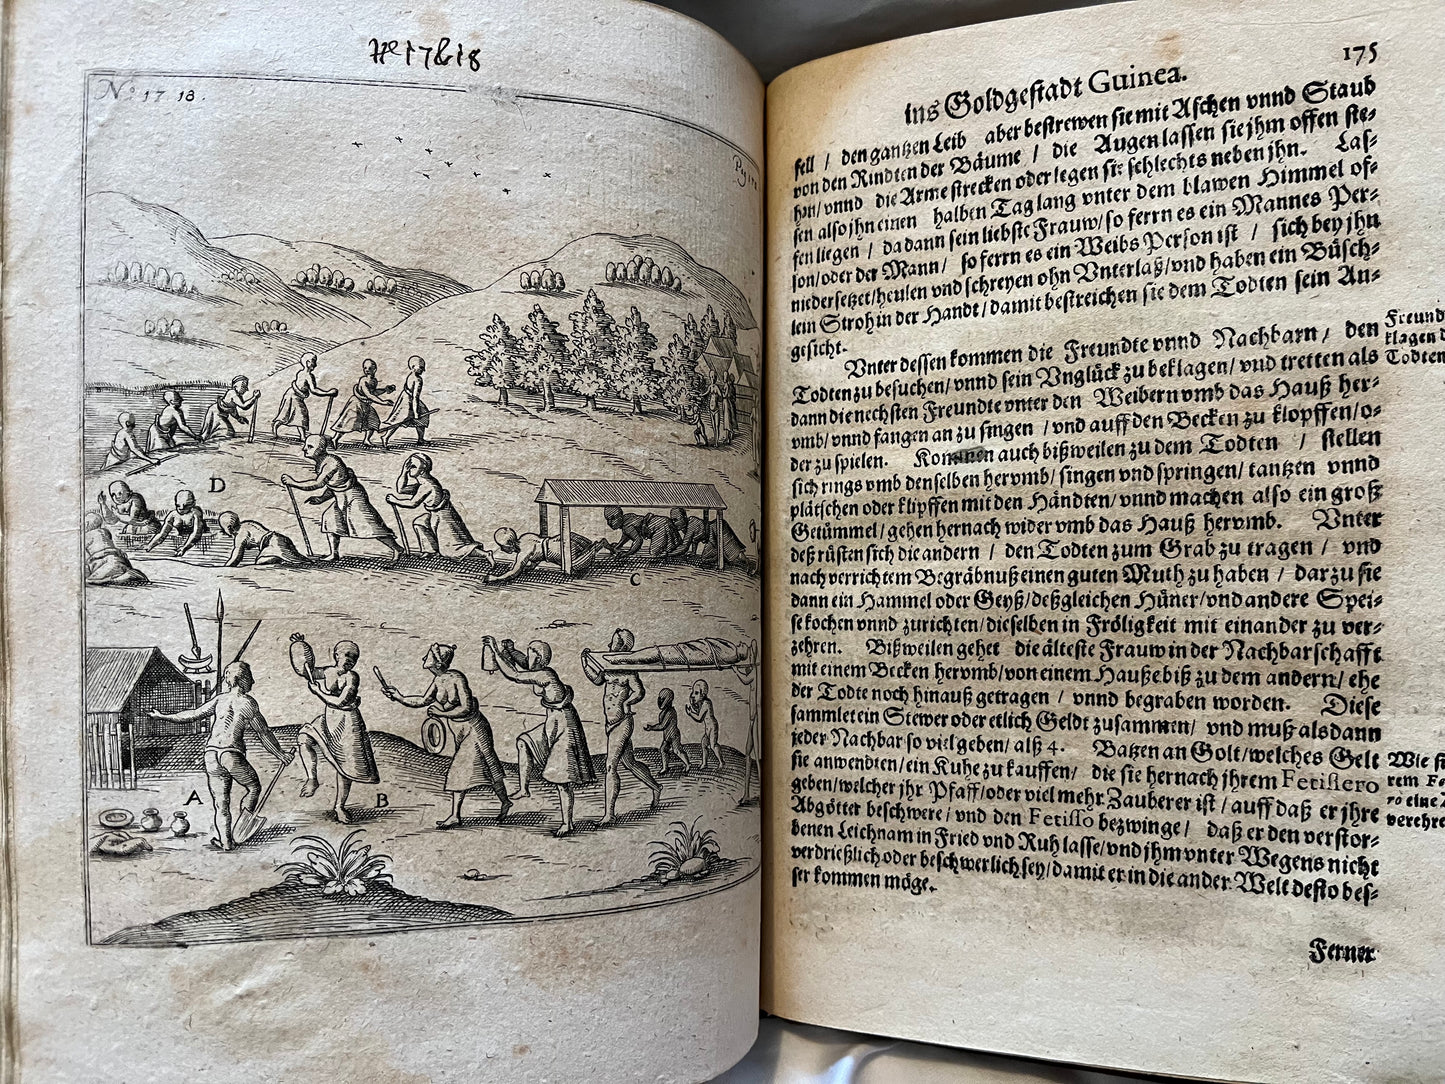 No 17 & 18
No 17 18.
D
C
A
B
175
ins Goldgestadt Guinea.
fell / den gantzen Leib aber bestrewen sie mit Aschen vnnd Staub
von den Rindten der Bäume / die Augen lassen sie jhm offen ste⸗
hen/vnnd die Arme strecken oder legen sie schlechts neben jhn. Las⸗
sen also jhn einen halben Tag lang vnter dem blawen Himmel of⸗
fen liegen / da dann sein liebste Frauw/ so ferrn es ein Mannes Per⸗
son/oder der Mann/ so ferrn es ein Weibs Person ist / sich bey jhn
niedersetzet/heulen vnd schreyen ohn Vnterlaß/vnd haben ein Büsch⸗
lein Stroh in der Handt/damit bestreichen sie dem Todten sein An⸗
gesicht.
Vnter dessen kommen die Freundte vnnd Nachbarn / den
Todten zu besuchen/vnnd sein Vnglück zu beklagen/vnd tretten als
dann die nechsten Freundte vnter den Weibern vmb das Hauß her⸗
vmb/vnnd fangen an zu singen / vnd auff den Becken zu klopffen/o⸗
der zu spielen. Kommen auch bißweilen zu dem Todten / stellen
sich rings vmb denselben hervmb/singen vnd springen/tantzen vnnd
plätschen oder klipffen mit den Händten/vnnd machen also ein groß
Getümmel/gehen hernach wider vmb das Hauß hervmb. Vnter
deß rüsten sich die andern / den Todten zum Grab zu tragen / vnd
nach verrichtem Begräbnuß einen guten Muth zu haben / darzu sie
dann ein Hammel oder Geyß/deßgleichen Hüner/vnd andere Spei⸗
se kochen vnnd zurichten/dieselben in Fröligkeit mit einander zu ver⸗
zehren. Bißweilen gehet die älteste Frauw in der Nachbarschafft
mit einem Becken hervmb/von einem Hauße biß zu dem andern/ ehe
der Todte noch hinauß getragen / vnnd begraben worden. Diese
sammlet ein Stewer oder etlich Geldt zusammen/ vnd muß alsdann
jeder Nachbar so viel geben/ alß 4. Batzen an Golt/welches Gelt
sie anwendten/ein Kuhe zu kauffen/ die sie hernach jhrem Fetissero
geben/welcher jhr Pfaff/oder viel mehr Zauberer ist / auff daß er jhre
Abgötter beschwere/vnd den Fetisso bezwinge/ daß er den verstor⸗
benen Leichnam in Fried vnd Ruh lasse/vnd jhm vnter Wegens nicht
verdrießlich oder beschwerlich sey/damit er in die ander Welt desto bes⸗
ser kommen möge.
Freund
klagen d
Todten
Wie si
rem Fe
ro eine
verehre
Ferner